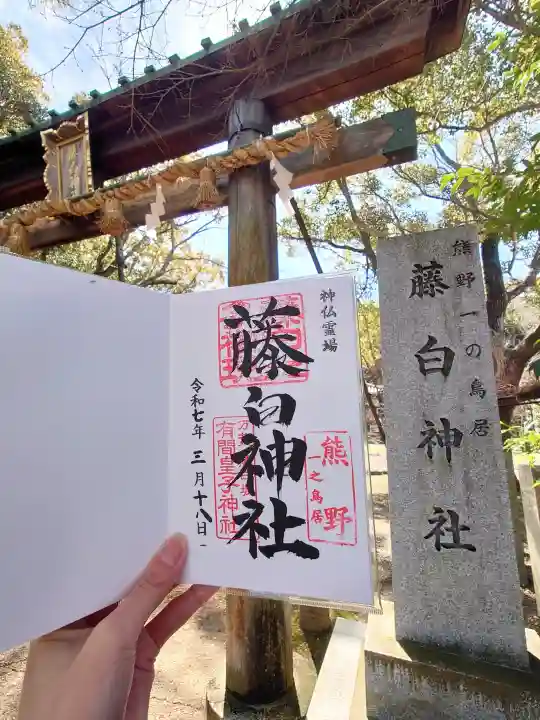 神仏霊場
藤白神社
熊野
一之鳥居
有間皇子神社
令和七年三月十八日
熊野一の鳥居
藤白神社